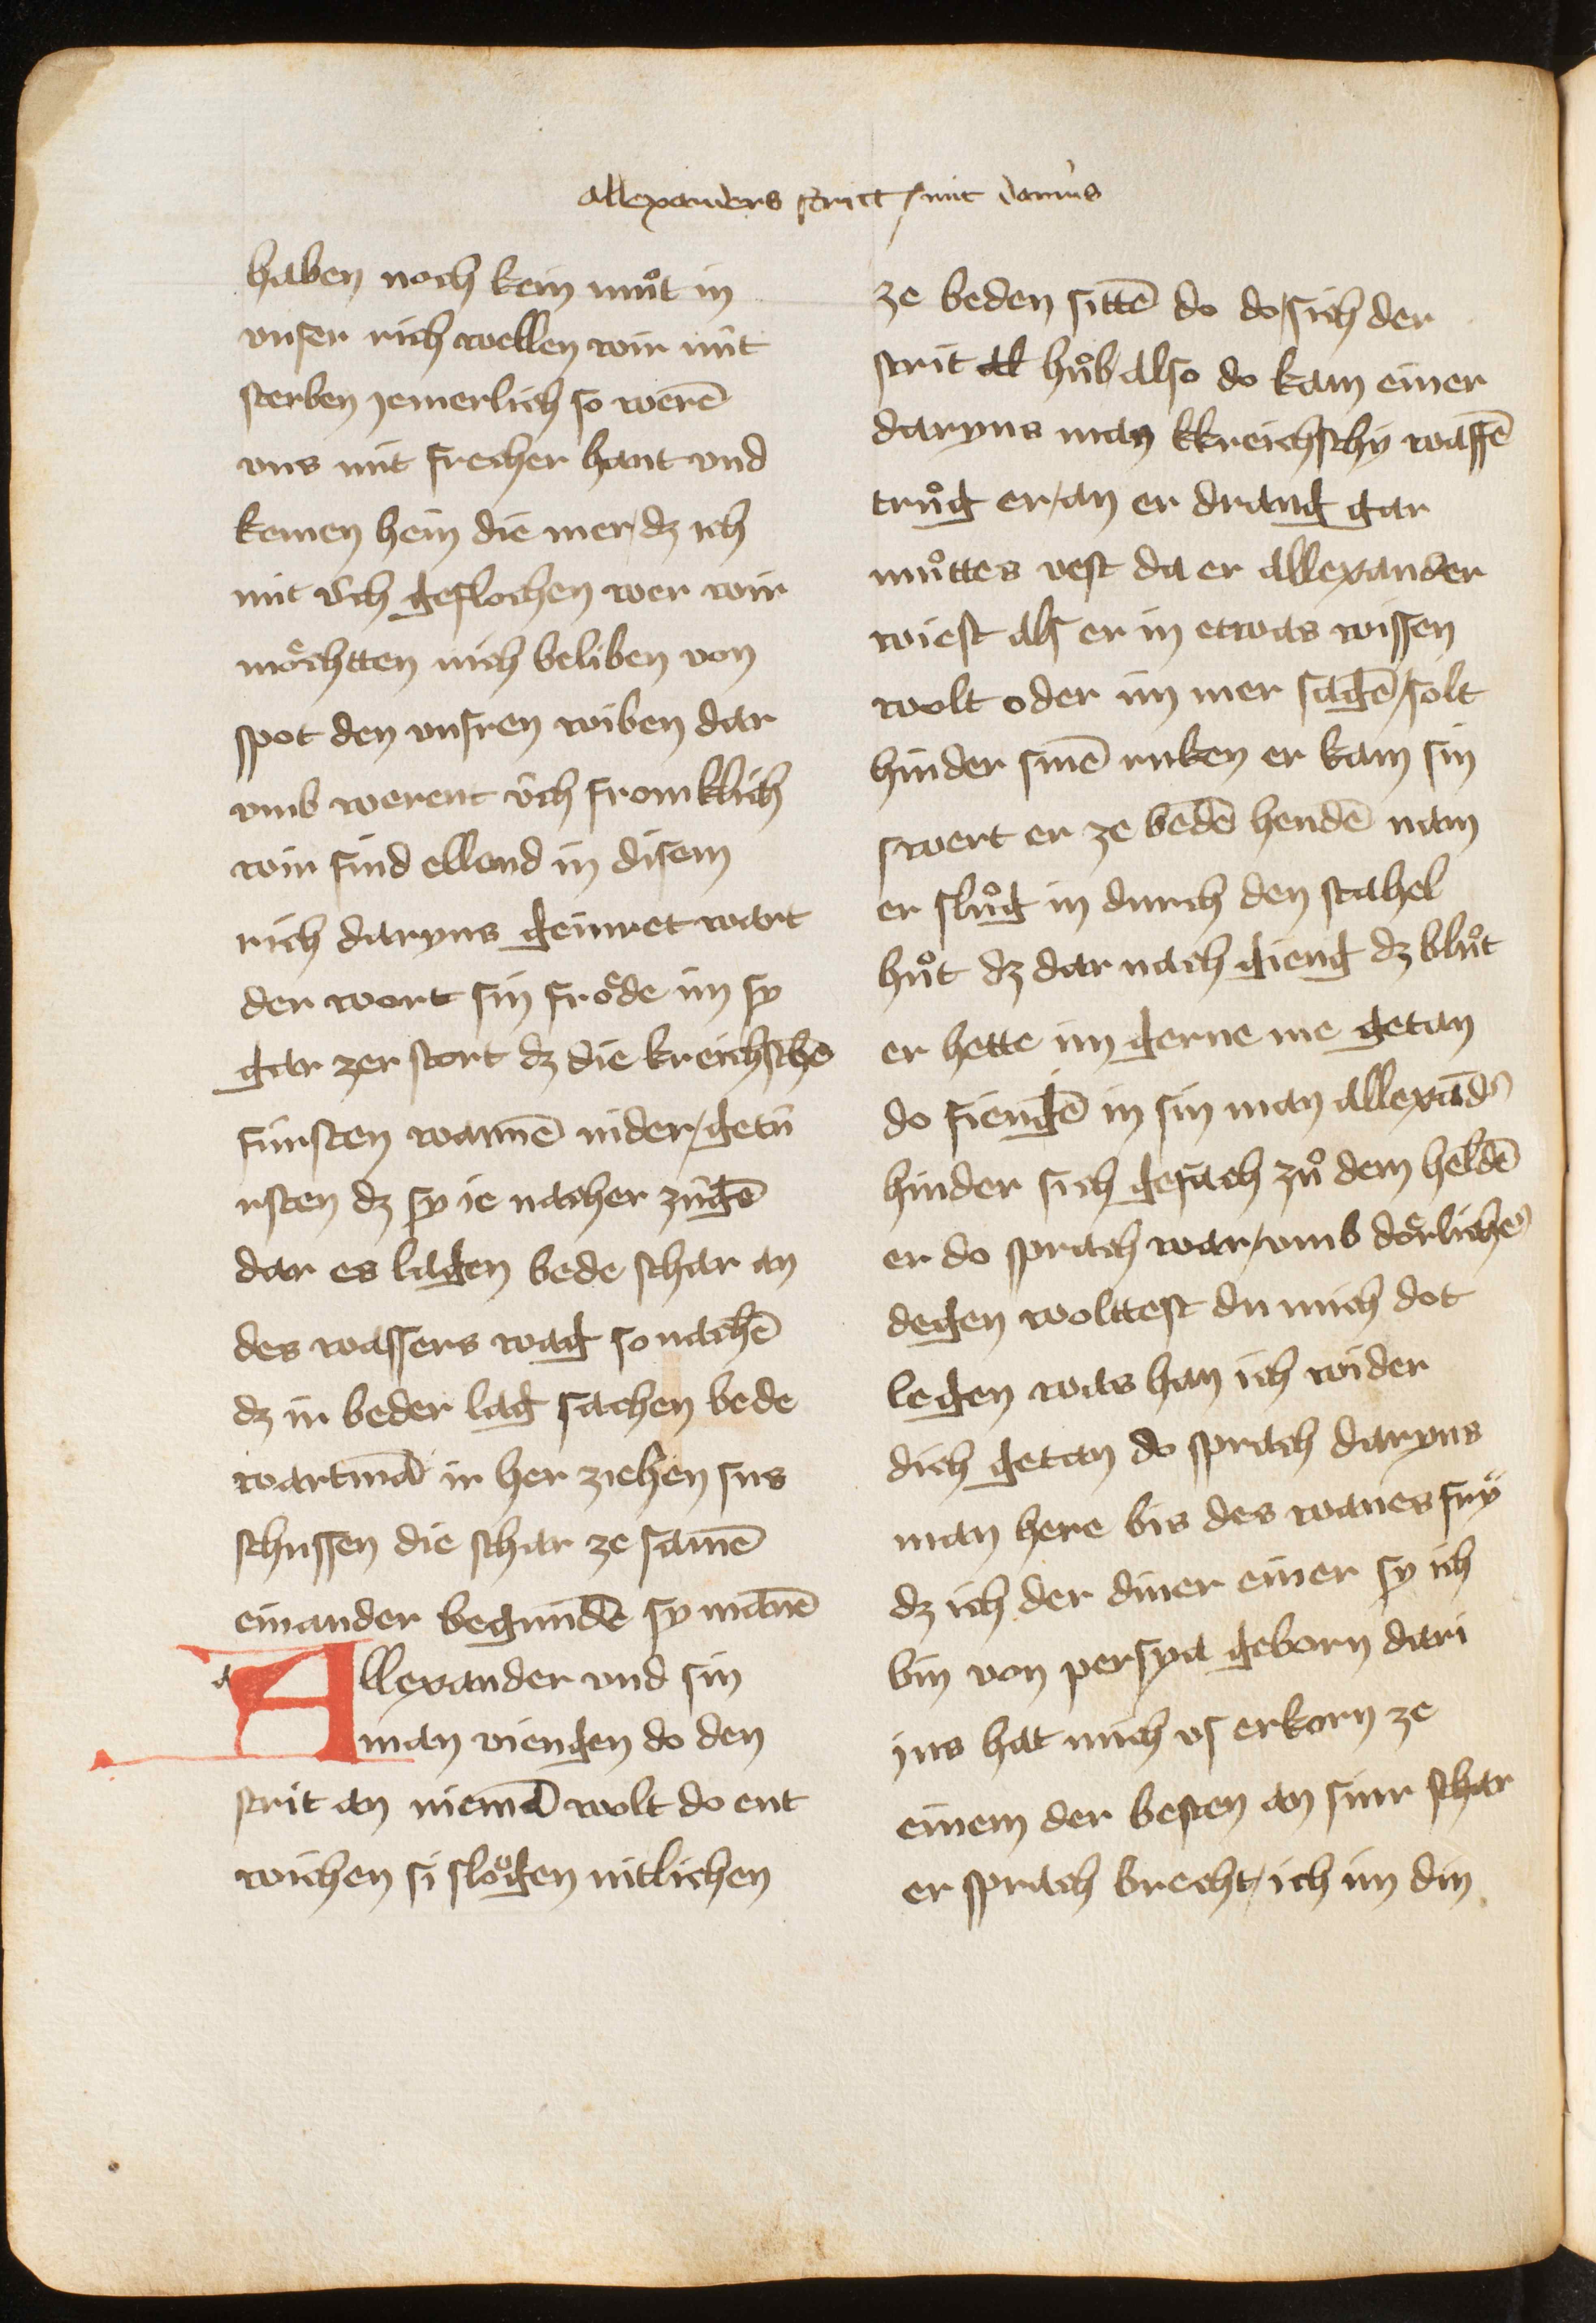 allexanders stritt mit darius
haben noch kein muͦt in
vnser rich wellen wir nit
sterben jemerlich so werē
vns mit frecher hant vnd
kemen hein die mer dz ich
mit v̂ch geflochen wer wir
moͤchtten nich beliben von
spot den vnsren wiben dar
vmb werent v̂ch fromklich
wir sind ellend in disem
rich daryus geunret wart
der wort sin froͤde im sy
gar zerstort dz die kreichsche
fursten warnē nider getu
rsten dz sy ie nacher zugē
dar es lagen bede schar an
des wassers wag so nachē
dz ir beder lag sachen bede
wartmā ir her ziehen sus
schussen die schar ze samē
einander begundē sy manē
a Allexander vnd sin
man viengen do den
strit an niemā wolt do ent
wichen si sloͤgen nitlichen
ze beden sittē do do sich der
strit huͦb also do kam einer
daryus man kkreichschy waffē
truͦg er an er drang gar
muͦttes vest da er allexander
wiest als er in etwas wissen
wolt oder im mer sagē solt
hinder sinē ruken er kam sin
swert er ze bedē hendē nam
er sluͦg in durch den stahel
huͦt dz dar nach gieng dz bluͦt
er hette im gerne me getan
do fiengē in sin man allexād
hinder sich gesach zuͦ dem heldē
er do sprach war vmb doͤrliche
degen wolttest du mich dot
legen was han ich wider
dich getan do sprach daryus
man here bis des wanes fry
dz ich der diner einer sy ich
bin von persya geborn dari
jus hat mich vs erkorn ze
einem der besten an sinr schar
er sprach brecht ich im din